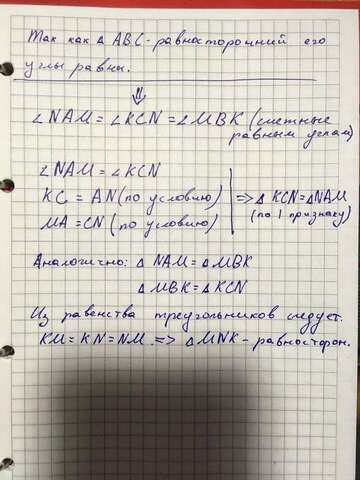 Так как △ ABC - равносторонний его
углы равны.
⇓
∠NAM = ∠KCN = ∠MBK (смежные
равным углам)
∠NAM = ∠KCN
KC = AN (по условию) => △ KCN = △NAM
MA = CN (по условию) (по 1 признаку)
Аналогично: △ NAM = △ MBK
△ MBK = △ KCN
Из равенства треугольников следует.
KM = KN = NM. => △ MNK - равносторон.